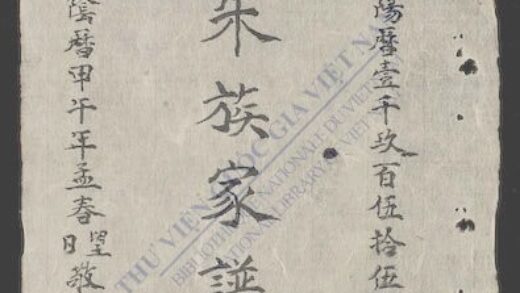 陽曆壹千玖百伍拾伍
朱族家譜
陰曆甲午年孟春望日敬
THƯ VIỆN QUỐC GIA VIỆT NAM
BIBLIOTHÈQUE NATIONALE DU VIETNAM
NATIONAL LIBRARY OF VIETNAM